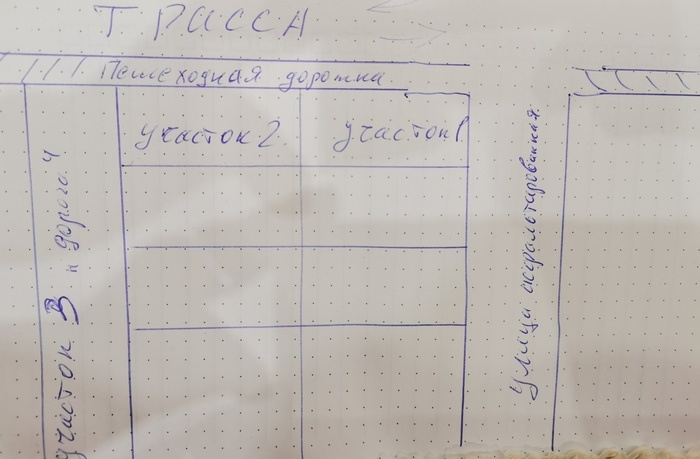 ТРАССА
Пешеходная дорожка
участок 2
участок 1
участок 3
и дорога 4
улица асфальтированная